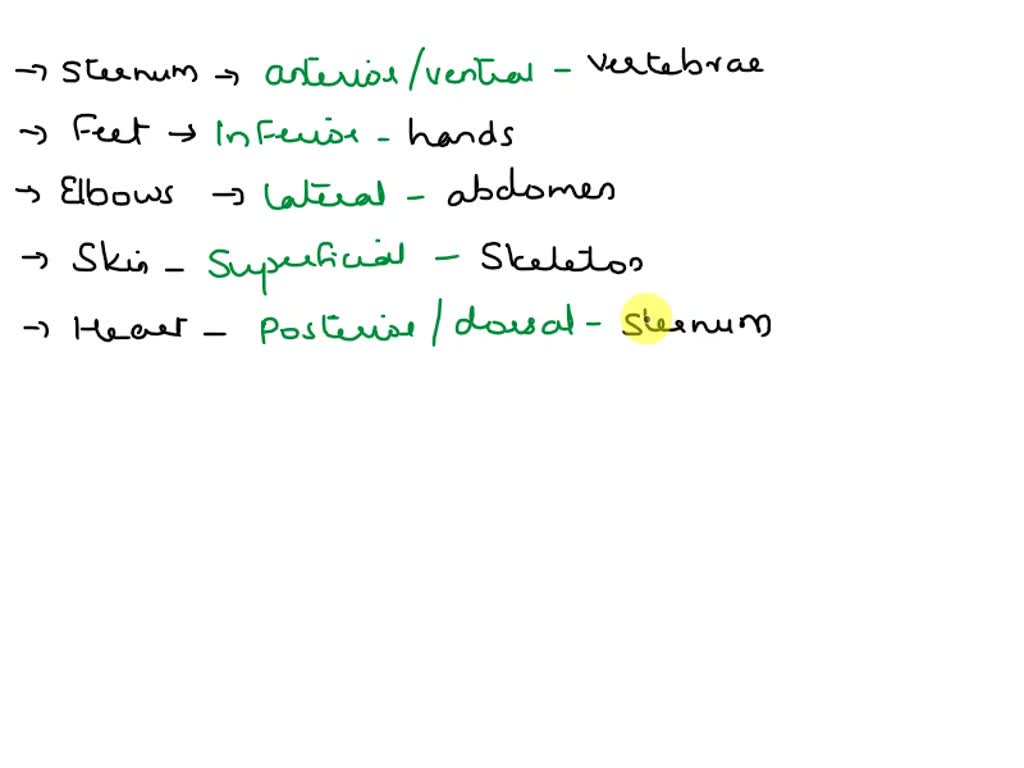 → Sternum → anterior/ventral - vertebrae
→ Feet → Inferior - hands
→ Elbows → lateral - abdomen
→ Skin - Superficial - Skeleton
→ Heart - Posterior/dorsal - Sternum